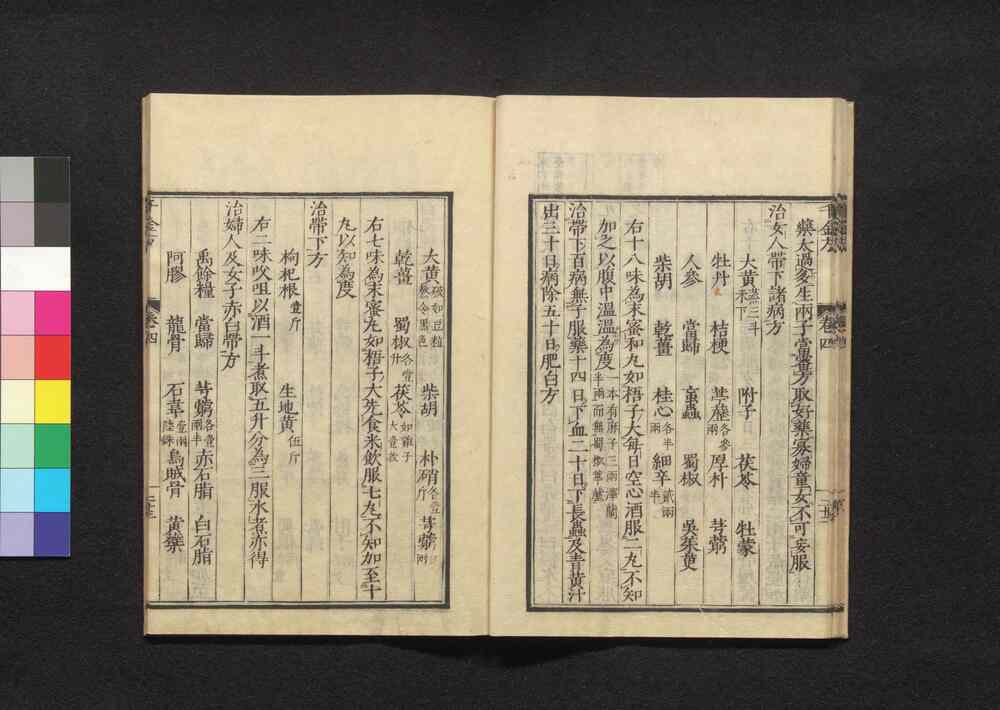 藥太過多生兩子當審方取好藥寡婦童女不可妄服
治女人帶下諸病方
大黃蒸三斗米下 附子 茯苓 牡蒙
牡丹 桔梗 葶藶各參兩 厚朴 芎藭
人參 當歸 䖟蟲 蜀椒 吳茱萸
柴胡 乾薑 桂心各半兩 細辛貳兩半
右十八味為末蜜和丸如梧子大每日空心酒服二丸不知
加之以腹中溫溫為度一本有麻子三兩澤蘭半兩而無蜀椒葶藶
治帶下百病無子服藥十四日下血二十日下長蟲及青黃汁
出三十日病除五十日肥白方
大黃破如豆粒熬令黑色 柴胡 朴硝各壹斤 芎藭
乾薑 蜀椒各壹升 茯苓如雞子大壹枚
右七味為末蜜丸如梧子大先食米飲服七丸不知加至十
丸以知為度
治帶下方
枸杞根壹斤 生地黃伍斤
右二味㕮咀以酒一斗煮取五升分為三服水煮亦得
治婦人及女子赤白帶方
禹餘糧 當歸 芎藭各壹兩半 赤石脂 白石脂
阿膠 龍骨 石韋壹兩陸銖 烏賊骨 黃蘗
千金方
卷四